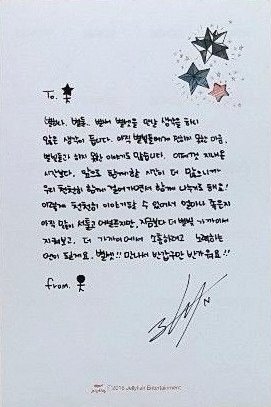 To.
별빛, 별들. 벌써 별빛을 만날 생각을 하니
많은 생각이 듭니다. 아직 별빛들에게 전하지 못한 마음,
별빛들과 하지 못한 이야기도 많습니다. 이제껏 지내온
시간보다, 앞으로 함께할 시간이 더 많으니까
우리 천천히 함께 걸어가면서 함께 나누도록 해요!
이렇게 천천히 이야기할 수 있어서 얼마나 좋은지
아직 많이 서툴고 어설프지만, 지금보다 더 별빛 가까이에서
지켜보고, 더 가까이에서 소통하려고 노력하는
엔이 될게요. 별빛!! 만나서 반갑구만 반가워요!!
from.
N
© 2016 Jellyfish Entertainment